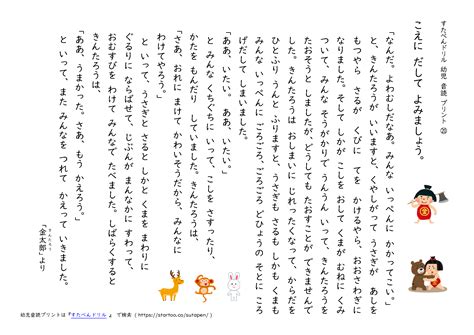 すたぺんドリル 幼児 音読 プリント ㉑
こえに だして よみましょう。
「なんだ。よわむしだなあ。みんな いっぺんに かかってこい。」
と、きんたろうが いいますと、くやしがって うさぎが あしを
もつやら さるが くびに てを かけるやら、おおさわぎに
なりました。そして しかが こしを おして くまが むねに くみ
ついて、みんな そうがかりで うんうん いって、きんたろうを
たおそうと しましたが、どうしても たおすことが できませんで
した。きんたろうは おしまいに じれったくなって、からだを
ひとふり うんと ふりますと、うさぎも さるも しかも くまも
みんな いっぺんに ごろごろ、ごろごろ どひょうの そとに ころ
げだして しまいました。
「ああ、いたい。ああ、いたい。」
と みんな くちぐちに いって、こしを さすったり、
かたを もんだり していました。きんたろうは、
「さあ、おれに まけて かわいそうだから、みんなに
わけてやろう。」
と いって、うさぎと さると しかと くまを まわりに
ぐるりに ならばせて、じぶんが まんなかに すわって、
おむすびを わけて みんなで たべました。しばらくすると
きんたろうは、
「ああ、うまかった。さあ、もう かえろう。」
と いって、また みんなを つれて かえって いきました。
「金太郎」より
きんたろう
幼児音読プリントは『すたぺんドリル』で検索（ https://startoo.co/sutapen/ ）